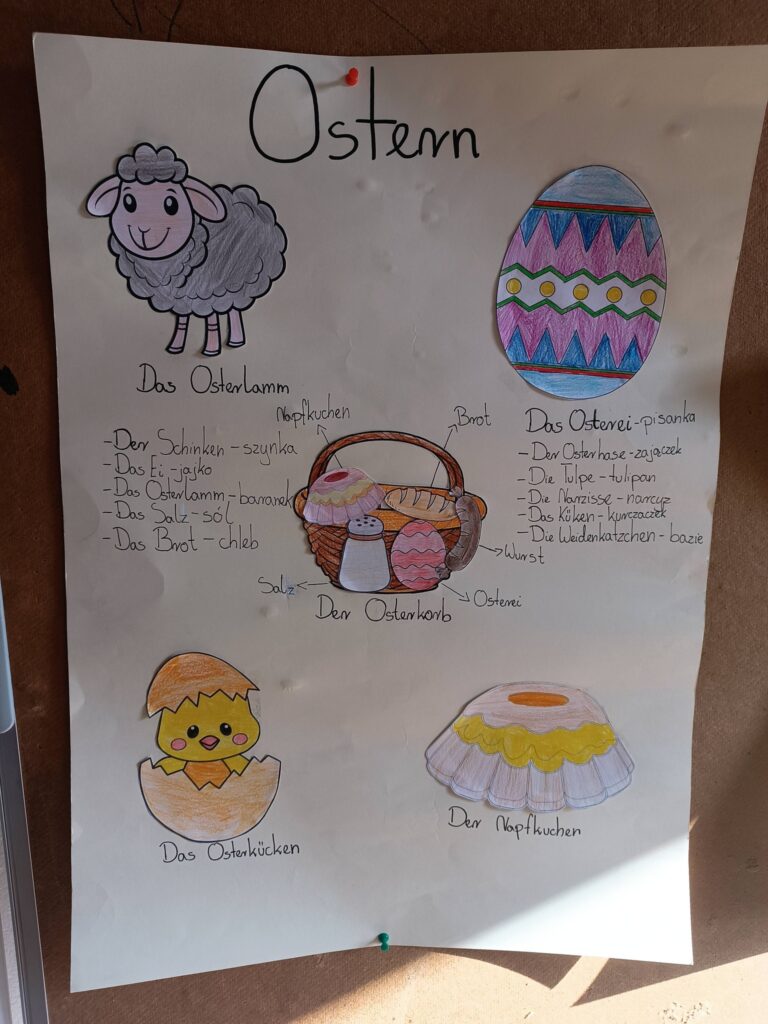 Ostern
Das Osterlamm
- Der Schinken - szynka
- Das Ei - jajko
- Das Osterlamm - baranek
- Das Salz - sól
- Das Brot - chleb
Napfkuchen
Brot
Wurst
Salz
Osterei
Der Osterkorb
Das Osterei - pisanka
- Der Osterhase - zajączek
- Die Tulpe - tulipan
- Die Narzisse - narcyz
- Das Küken - kurczaczek
- Die Weidenkätzchen - bazie
Das Osterkücken
Der Napfkuchen